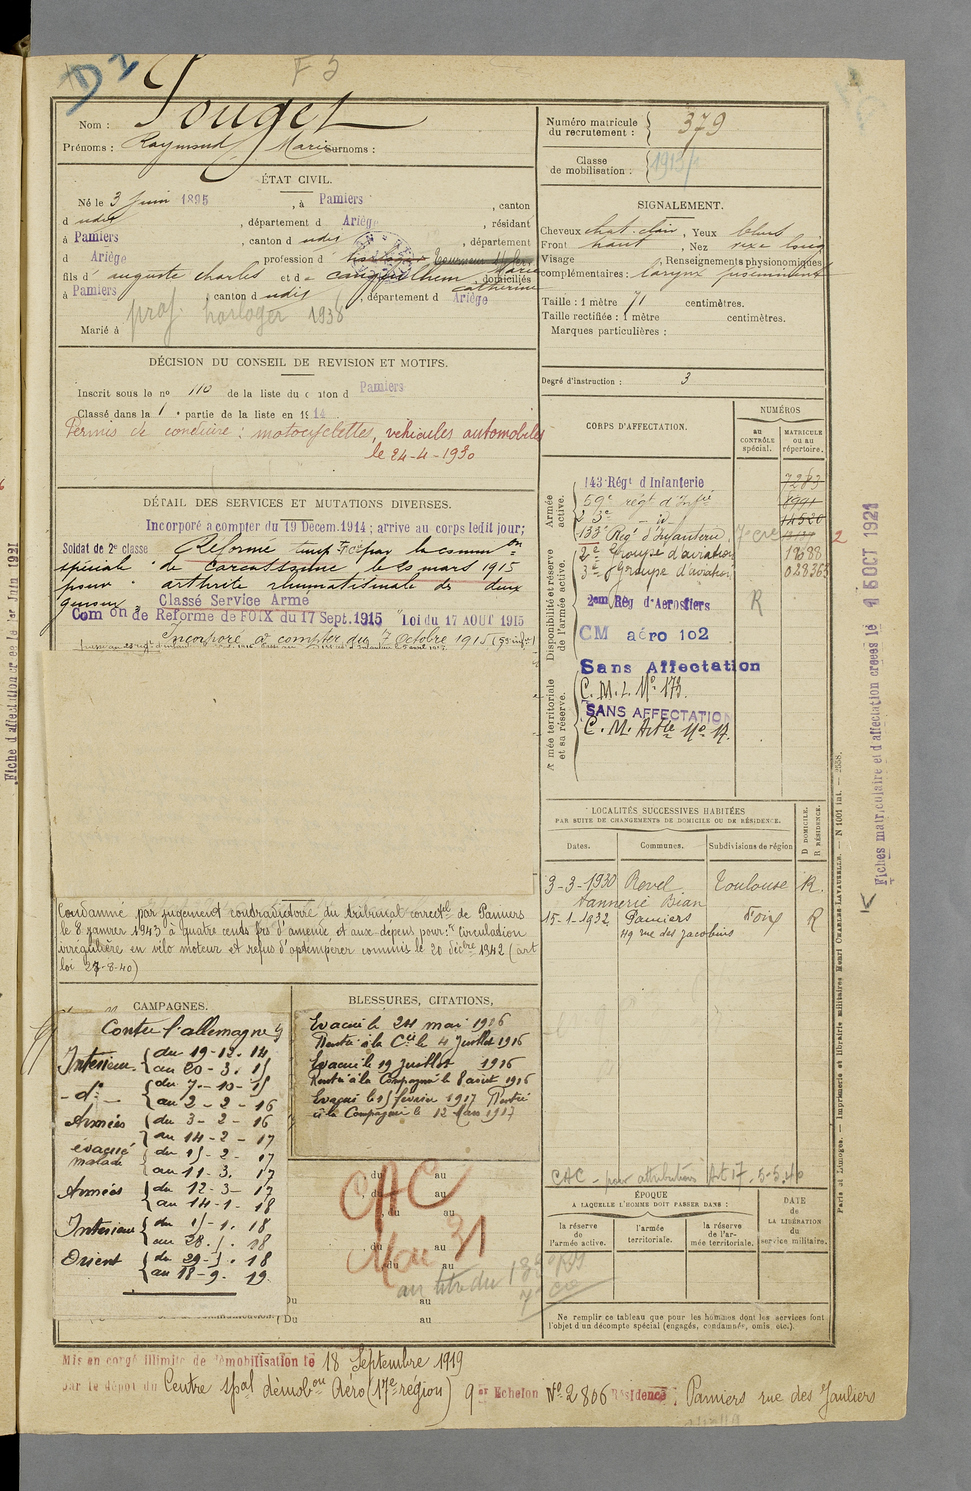 D 2
F 5
Nom : Pouget
Prénoms : Raymond Marie Surnoms :
Numéro matricule du recrutement : 379
Classe de mobilisation : 1915
ÉTAT CIVIL.
Né le 3 Juin 1895, à Pamiers, canton
d udit, département d Ariège, résidant
à Pamiers, canton d udit, département
d Ariège, profession d horloger
fils d' auguste charles et de Marie domiciliés
Catherine
à Pamiers, canton d udit, département d Ariège
prof. horloger 1938
Marié à
SIGNALEMENT.
Cheveux chat. clair, Yeux bleus
Front haut, Nez long
Visage , Renseignements physionomiques
complémentaires : larynx proéminent
Taille : 1 mètre 71 centimètres.
Taille rectifiée : 1 mètre centimètres.
Marques particulières :
Degré d'instruction : 3
DÉCISION DU CONSEIL DE REVISION ET MOTIFS.
Inscrit sous le nº 110 de la liste du canton d Pamiers
Classé dans la 1e partie de la liste en 1914
Permis de conduire : motocyclettes, véhicules automobiles
le 24-4-1930
DÉTAIL DES SERVICES ET MUTATIONS DIVERSES.
Incorporé à compter du 19 Décem. 1914 ; arrivé au corps ledit jour;
Soldat de 2e classe Réformé temp. par la common
spéciale de Carcassonne le 20 mars 1915
pour arthrite rhumatismale des deux
genoux. Classé Service Armé
Comon de Réforme de FOIX du 17 Sept. 1915 Loi du 17 AOUT 1915
Incorporé à compter du 7 Octobre 1915
CORPS D'AFFECTATION.
NUMÉROS
au CONTRÔLE spécial.
MATRICULE ou au répertoire.
Armée active.
143 Régt d'Infanterie 7283
59e régt d'Infie 8991
23e - id - 14520
133e Regt d'Infanterie 7e cie
Disponibilité et réserve de l'armée active.
2e Groupe d'aviation 18688
3e Groupe d'aviation 028363
2em Rég d'Aerostiers R
CM aéro 102
Sans Affectation
Armée territoriale et sa réserve.
C. M. I. No 173.
SANS AFFECTATION
C. M. Artie No 17.
LOCALITÉS SUCCESSIVES HABITÉES
PAR SUITE DE CHANGEMENTS DE DOMICILE OU DE RÉSIDENCE.
D DOMICILE.
R RÉSIDENCE.
Dates. Communes. Subdivisions de région
3-3-1930 Revel Toulouse R.
tannerie Bian
15-1-1932 Pamiers Foix R
49 rue des Jacobins
Condamné par jugement contradictoire du tribunal correctel de Pamiers
le 8 janvier 1943 à quatre cents frs d'amende et aux dépens pour : circulation
irrégulière en vélo moteur et refus d'optempérer commis le 20 décbre 1942 (art
loi 27-8-40)
CAMPAGNES.
Contre l'allemagne
Intérieur { du 19-12-14
au 20-3-15
- do - { du 7-10-15
au 2-2-16
Armées { du 3-2-16
au 14-2-17
évacué malade { du 15-2-17
au 11-3-17
Armées { du 12-3-17
au 14-1-18
Intérieur { du 15-1-18
au 28-5-18
Orient { du 29-5-18
au 18-9-19
BLESSURES, CITATIONS,
Evacué le 24 mai 1916
Rentré à la Cie le 4 Juillet 1916
Evacué le 19 Juillet 1916
Rentré à la Compagnie le 8 août 1916
Evacué le 15 février 1917 Rentré
à la Compagnie le 12 Mars 1917
du au
CAC
Mai 31
au titre du 133e RI
7e cie
CAC - pour attribution Art 17. 5-5-40
ÉPOQUE
A LAQUELLE L'HOMME DOIT PASSER DANS :
la réserve de l'armée active.
l'armée territoriale.
la réserve de l'armée territoriale.
DATE DE LA LIBÉRATION du service militaire.
Ne remplir ce tableau que pour les hommes dont les services font
l'objet d'un décompte spécial (engagés, condamnés, omis, etc.).
Mis en congé illimité de démobilisation le 18 Septembre 1919
par le dépôt du Centre spal démobon Aéro (17e région) 9em Echelon No 2806 Résidence : Pamiers rue des Jauliers
Fiche d'affectation créée le 1er Juin 1921
Fiches matriculaire et d'affectation créées le 15 OCT 1921
Paris et Limoges. — Imprimerie et librairie militaires Henri CHARLES-LAVAUZELLE. — N 1001 Int. — 2558.